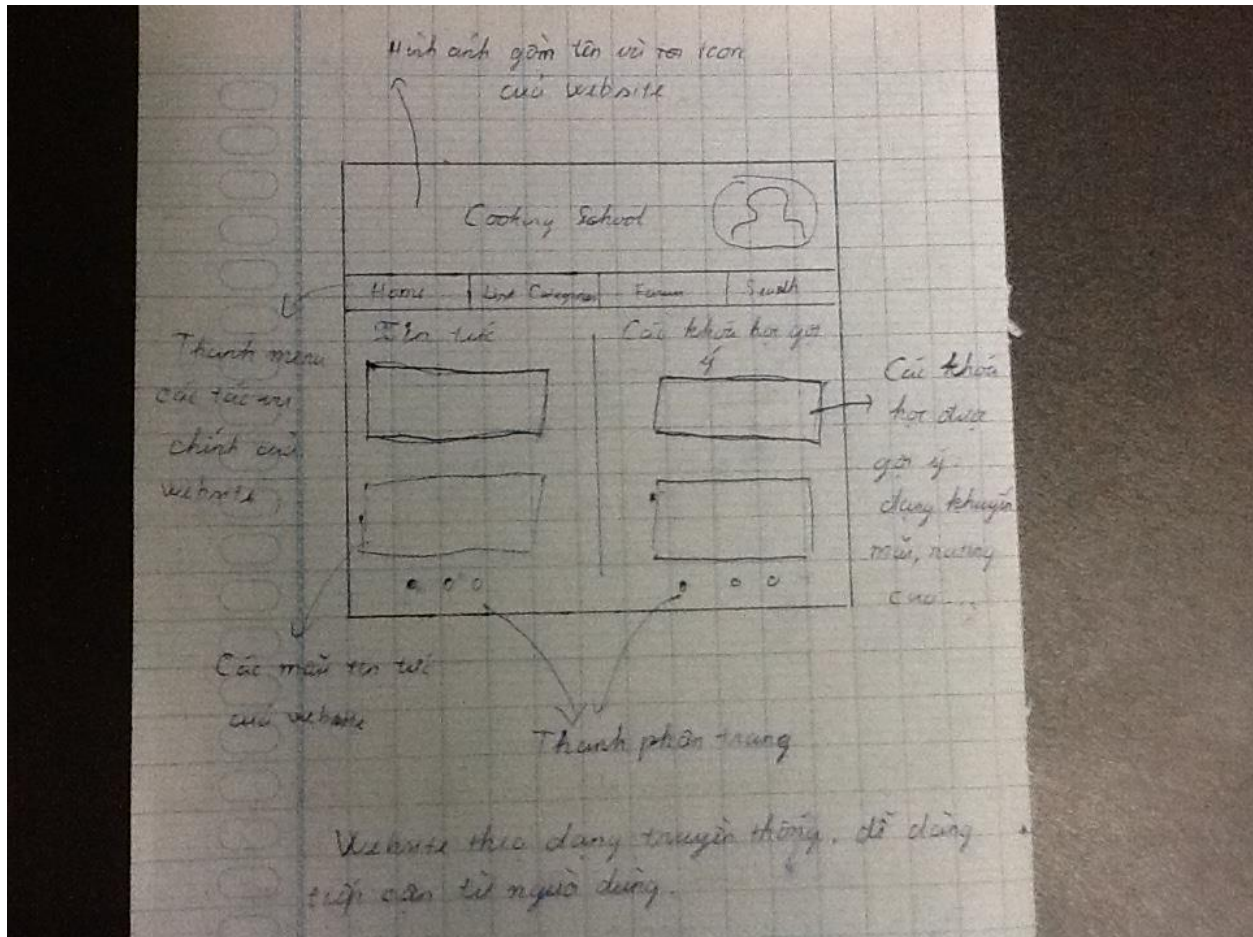 Hình ảnh gồm tên và icon
của website
Cooking School
Home
List Categories
Forum
Search
Tin tức
Các khóa học gợi
ý
Thanh menu
các tác vụ
chính của
website
Các khóa
học được
gợi ý
dạng khuyến
mãi, nâng
cao...
Các mẫu tin tức
của website
Thanh phân trang
Website theo dạng truyền thống, dễ dàng
tiếp cận từ người dùng.